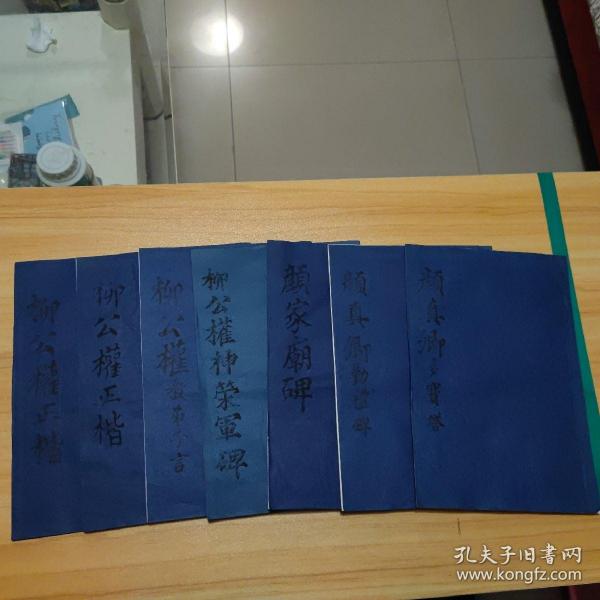 柳公權正楷
柳公權正楷
柳公權教弟子言
柳公權神策軍碑
顏家廟碑
顏真卿勤禮碑
顏真卿多寶塔
孔夫子旧书网
www.kongfz.com